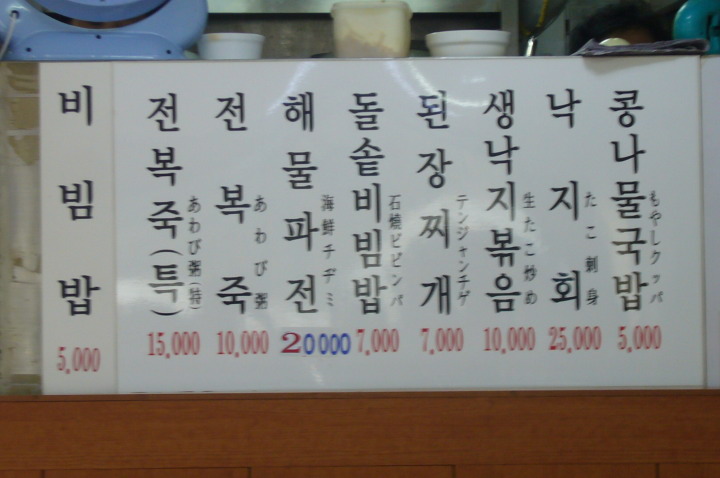 비빔밥
5,000
전복죽(특)
あわび粥(特)
15,000
전복죽
あわび粥
10,000
해물파전
海鮮チヂミ
20000
돌솥비빔밥
石焼ビビンバ
7,000
된장찌개
テンジャンチゲ
7,000
생낙지볶음
生たこ炒め
10,000
낙지회
たこ刺身
25,000
콩나물국밥
もやしクッパ
5,000